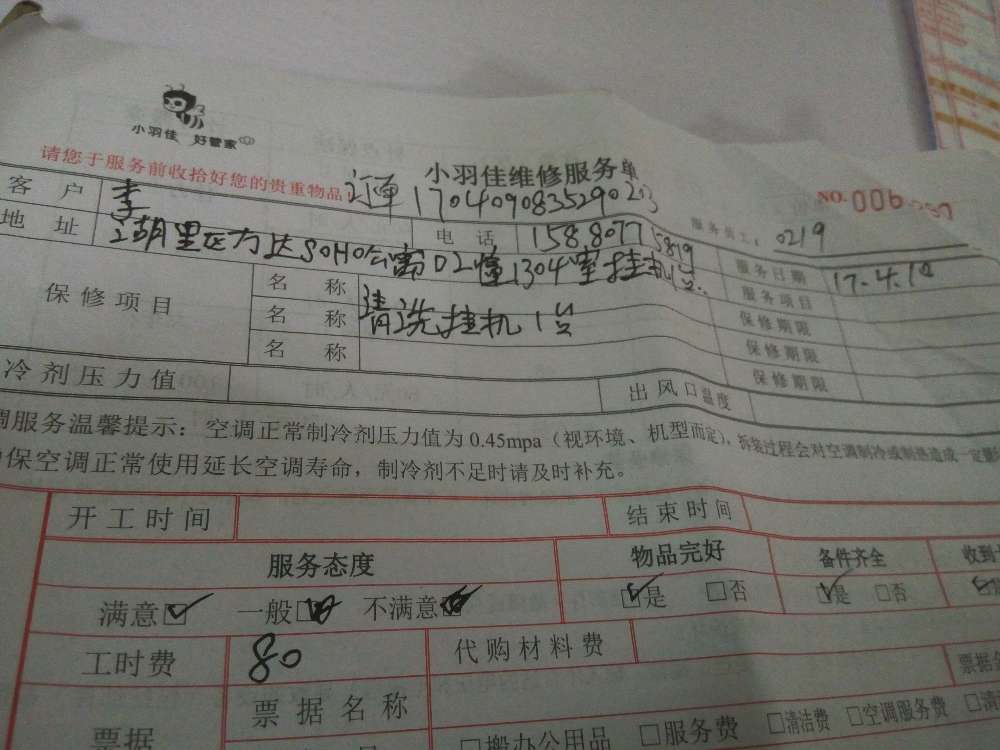 小羽佳 好管家
请您于服务前收拾好您的贵重物品
小羽佳维修服务单
订单 1704090835290203
NO. 006
客户 李 电话 158 8077 5819 服务员工: 0219
地址 湖里区万达SOHO公寓D2幢1304室挂机1台 服务日期 17.4.10
保修项目 名称 服务项目
名称 清洗挂机1台 保修期限
名称 保修期限
保修期限
冷剂压力值 出风口温度
调服务温馨提示：空调正常制冷剂压力值为 0.45mpa（视环境、机型而定），拆装过程会对空调制冷或制热造成一定影
保空调正常使用延长空调寿命，制冷剂不足时请及时补充。
开工时间 结束时间
服务态度 物品完好 备件齐全 收到
满意☑ 一般 不满意 ☑是 □否 ☑是 □否
工时费 80 代购材料费
票据 票据名称 票据
□搬办公用品 □服务费 □清洁费 □空调服务费 □清